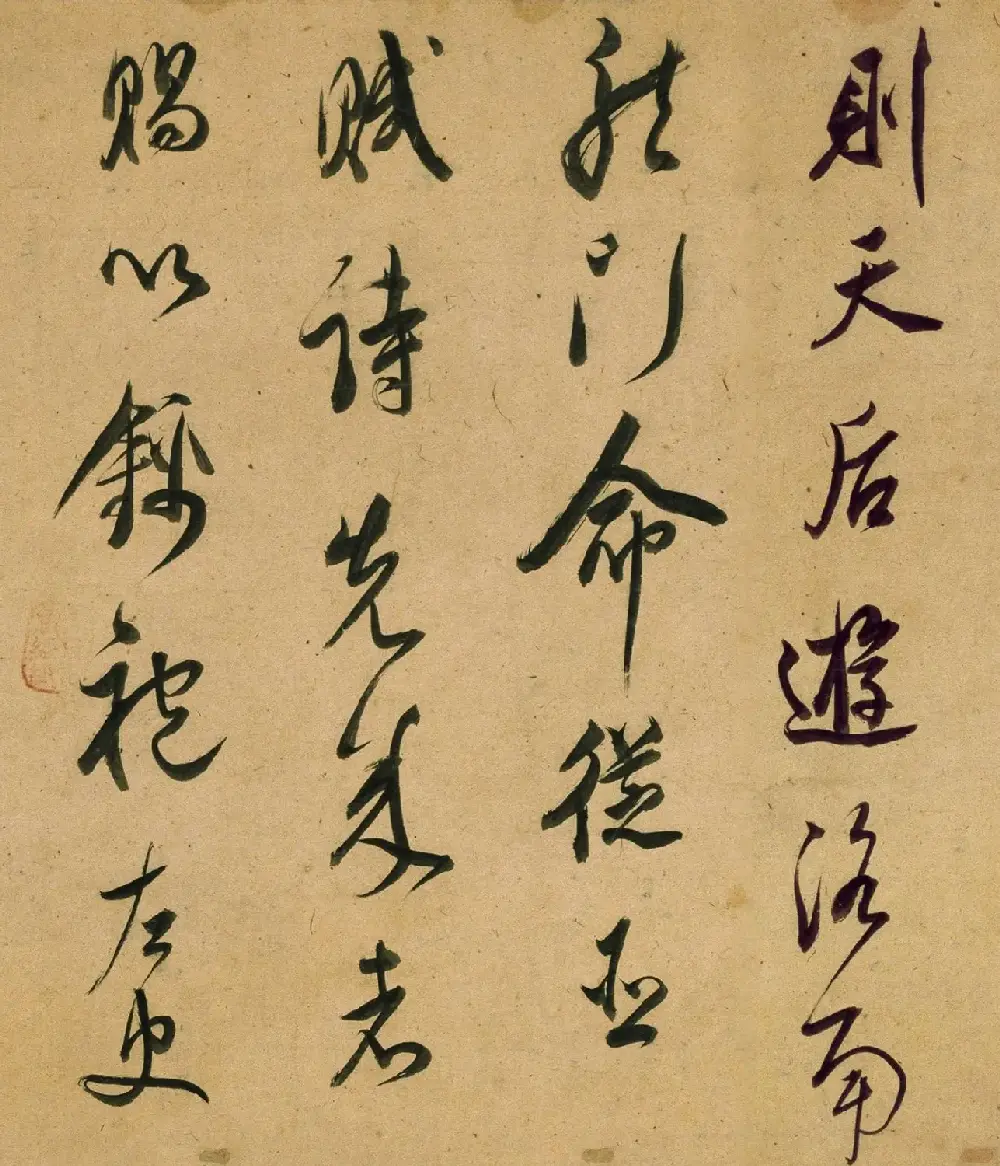 則天后遊洛南
龍門命從臣
賦詩先者
賜以錦袍左史